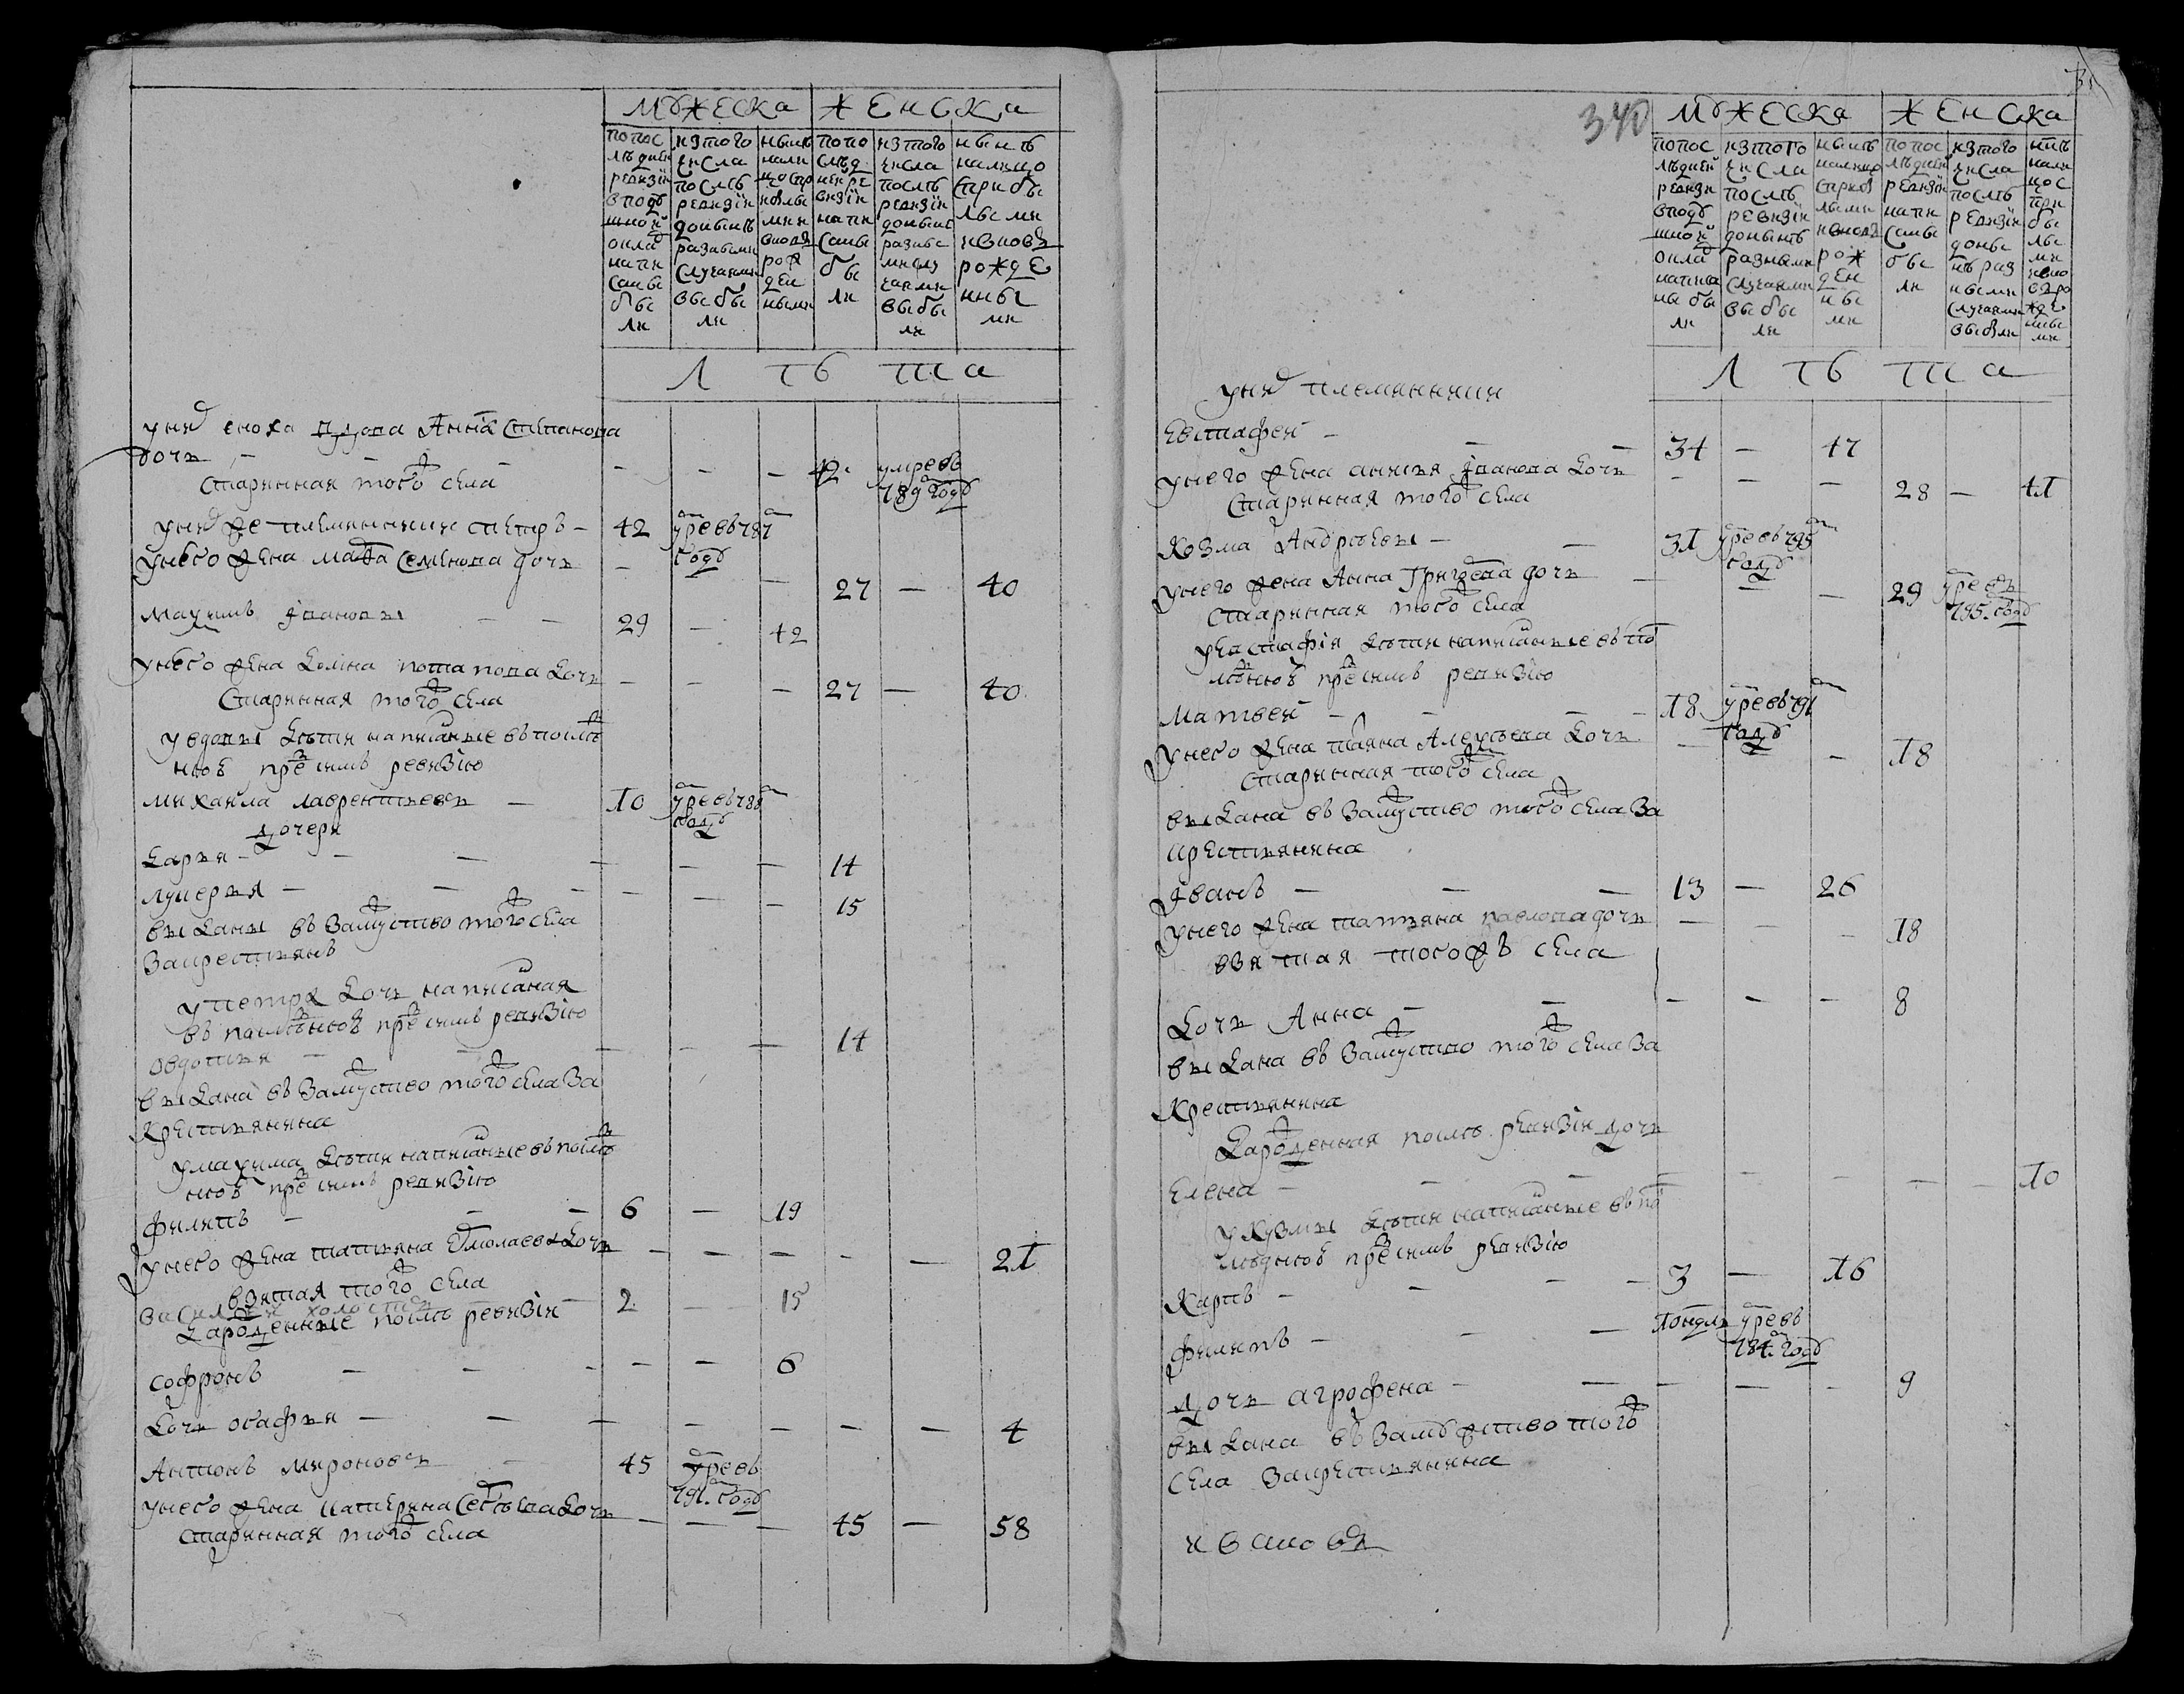 Мужеска Женска
попос лѣдней ревизи вподу шной оклад напи саны бы ли
изтого числа послѣ ревизіи донынѣ разными случаями выбы ли
нынѣ нали цо спри былы ми и вновь рож ден ными
попо слѣд ней ре визіи напи саны бы ли
изтого числа послѣ ревизіи донынѣ разны ми слу чаями выбы ли
нынѣ налицо спри бы лы ми ивновь рожде нны ми
Л ѣ та
у ней сноха вдова Анна Степанова
дочь - - - - - - 42. умре въ
старинная того села 789 году
у ней же племянники Петръ - 42 умре въ 787
году
у него жена Мавра Семенова дочь - - 27 - 40
Махимъ Ивановъ - - 29 - 42
у него жена Домна Потапова дочь - - - 27 - 40.
старинная того села
у вдовы дѣти написанные въ послѣ
нюю пред симъ ревизію
Михайла Лаврентьевъ - 10 умре въ 788
году
дочери
Дарья - - - - - - 14
Лукерья - - - - - - 15
выданы въ замуство того села
за крестьянъ
у Петра дочь написаная
въ послѣднюю пред симъ ревизію
Овдотья - - - - - 14
выдана въ замуство того села за
крестьянина
у Махима дѣти написанные въ послѣ
нюю пред симъ ревизію
Филипъ - - 6 - 19
у него жена Татьяна Ермолаева дочь - - - - - 21
взятая того села
Василей холостой 2. - 15
рожденные послѣ ревизіи
Софронъ - - - - - 6
дочь Огафья - - - - - - - 4
Антонъ Мироновъ - 45 умре въ
791. году
у него жена Катерина Савельева дочь - - - 45 - 58
старинная того села
340
Мужеска Женска
попос лѣдней ревизи вподу шной оклад написа ны бы ли
изтого числа послѣ ревизіи донынѣ разными случаями выбы ли
нынѣ налицо спри былыми ивновь рож ден ны ми
попос лѣдней ревизіи напи саны бы ли
изтого числа послѣ ревизіи доны нѣ раз ными случаями выбыли
нинѣ нали цо с при бы лы ми ивно вь ро жде нны ми
Л ѣ та
у ней племянники
Евстафей - - - 34 - 47
у него жена Анисья Иванова дочь - - - 28 - 41
старинная того села
Козма Андрѣевъ - - 31 умре въ 795
году
у него жена Анна Григорева дочь - - 29 умре въ
старинная того села 795. году
у Евстафія дѣти написанные въ по
слѣнюю пред симъ ревизію
Матвей - - - - 18 умре въ 791
году
у него жена Татьяна Алексѣева дочь - - 18
старинная того села
выдана въ замуство того села за
крестьянина
Иванъ - - - 13 - 26
у него жена Татьяна Павлова дочь - - - 18
взятая того жъ села
дочь Анна - - - - - 8
выдана въ замуство того села за
крестьянина
рожденная послѣ ревизіи дочь
Елена - - - - - - - - 10
у Кузмы дѣти написанные въ по
слѣднюю пред симъ ревизію
Карпъ - - - - 3 - 16
Филипъ - - - 10 недль умре въ
784. году
дочь Агрофена - - - - - 9
выдана въ замужство того
села за крестьянина
и вновь